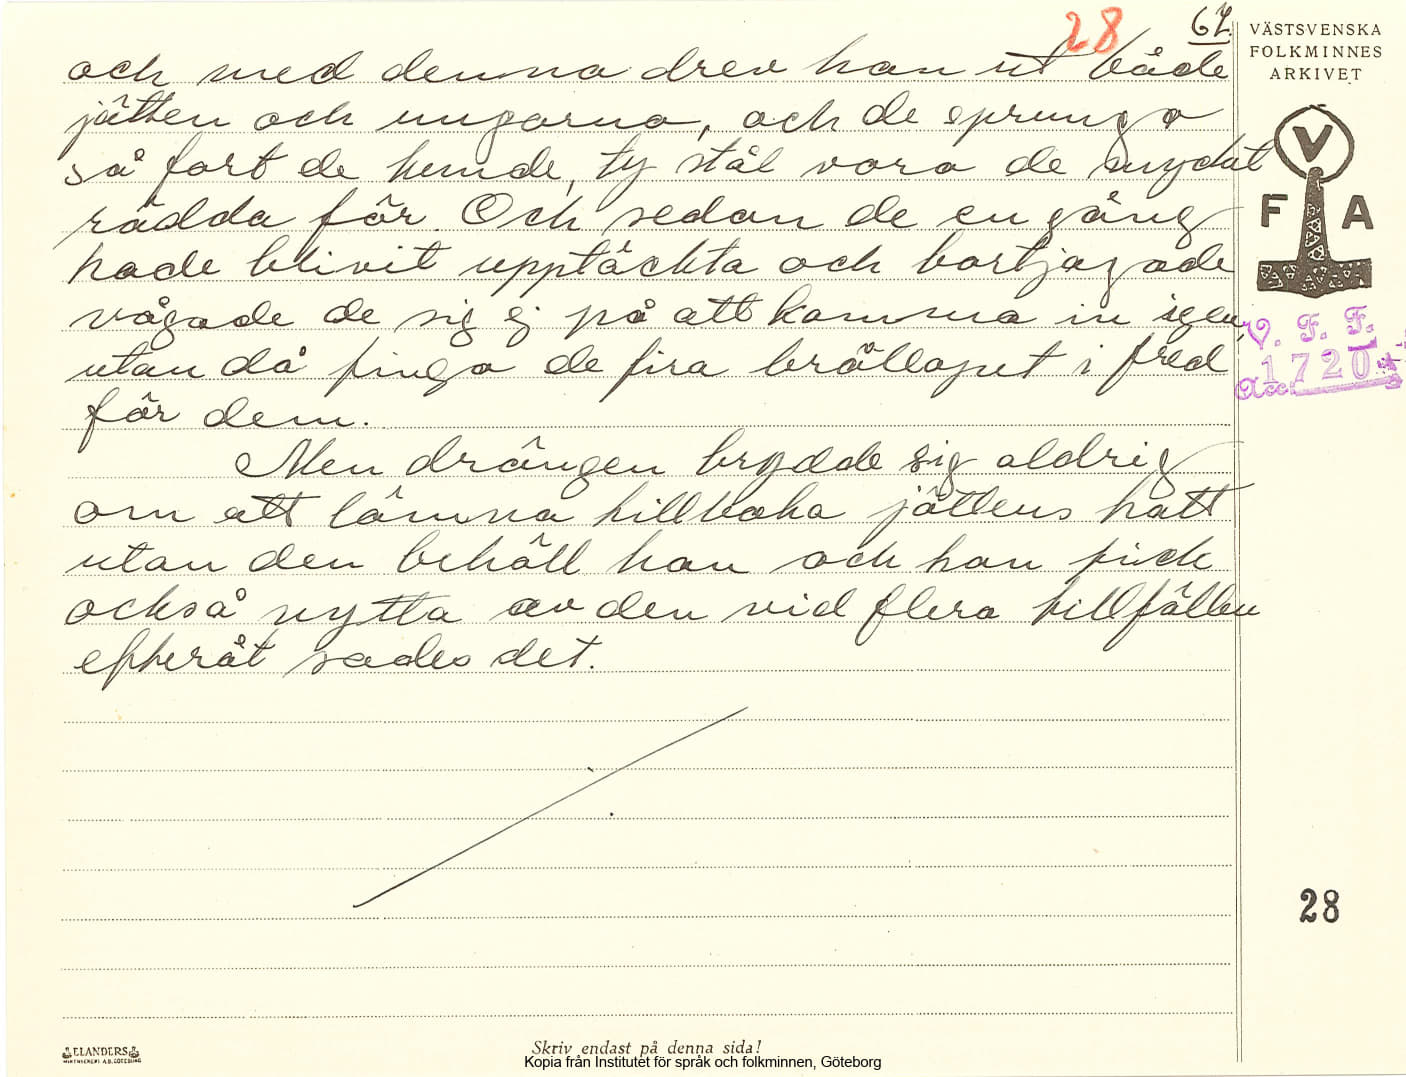 28 67.
VÄSTSVENSKA
FOLKMINNES
ARKIVET
och med denna drev han ut både
jätten och ungarna, och de sprungo
så fort de kunde, ty stål voro de mycket
rädda för. Och sedan de en gång
hade blivit upptäckta och bortjagade
vågade de sig ej på att komma in igen,
utan då fingo de fira bröllopet i fred
för dem.
Men drängen brydde sig aldrig
om att lämna tillbaka jättens hatt
utan den behöll han och han fick
också nytta av den vid flera tillfällen
efteråt sades det.
V
F A
V. F. F.
Acc. 1720
28
ELANDERS
Skriv endast på denna sida!
Kopia från Institutet för språk och folkminnen, Göteborg